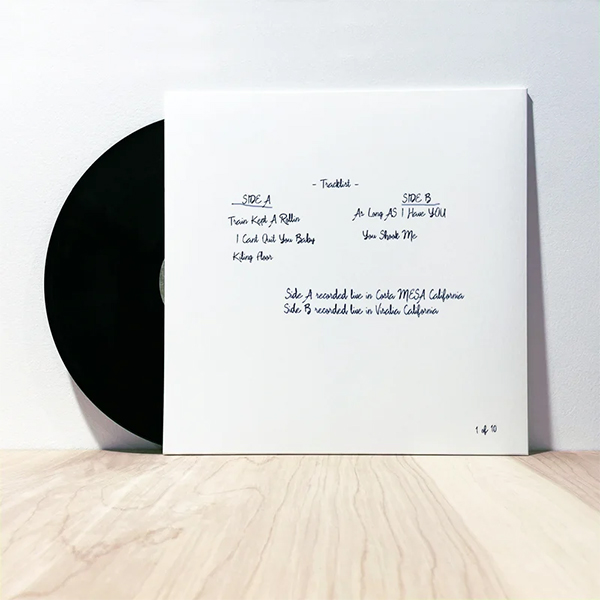 - Tracklist -
SIDE A
Train Kept A Rollin
I Cant Quit You Baby
Kiling Floor
SIDE B
As Long AS I Have YOU
You Shook Me
Side A recorded live in Costa MESA California
Side B recorded live in Visalia California
1 of 10